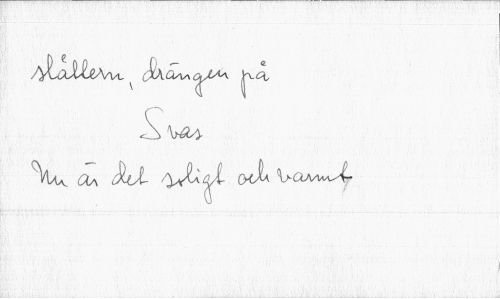 slåttern, drängen på
Svas
Nu är det soligt och varmt